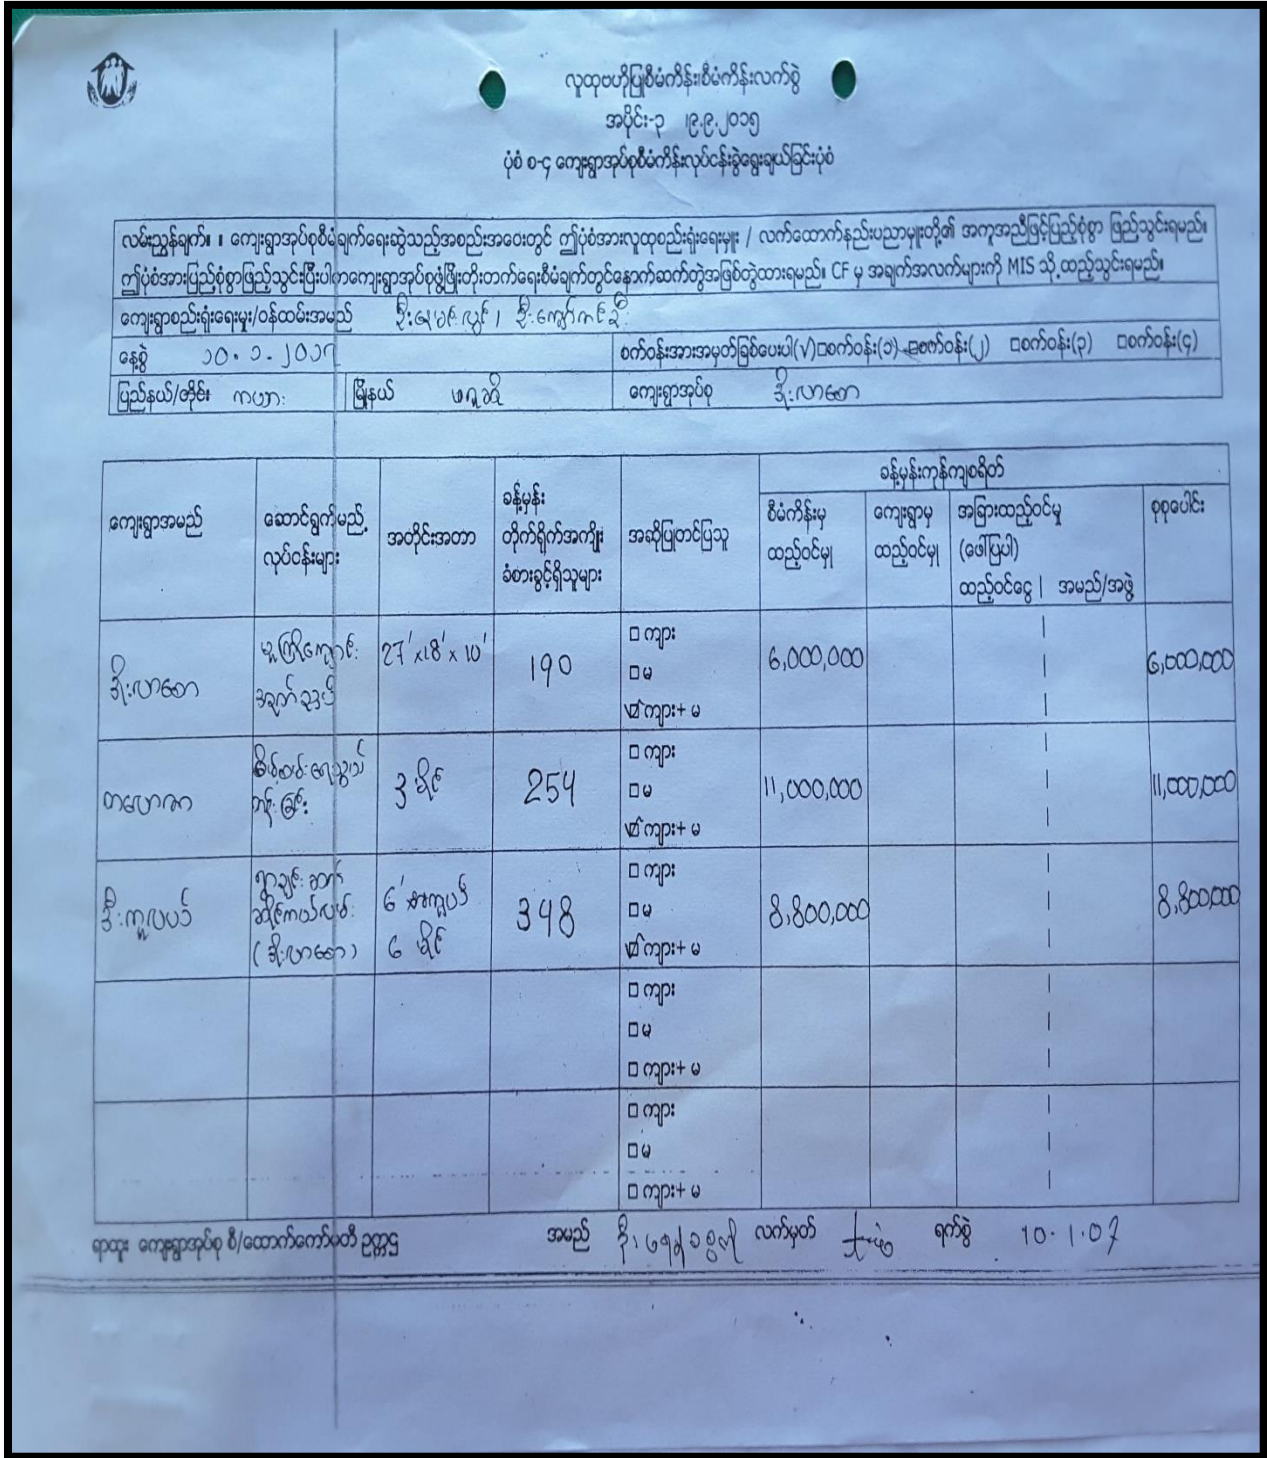 လူထုဗဟိုပြုစီမံကိန်းစီမံကိန်းလက်စွဲ
အပိုင်း-၃ ၊၉.၉.၂၀၁၅
ပုံစံ စ-၄ ကျေးရွာအုပ်စုစီမံကိန်းလုပ်ငန်းခွဲရွေးချယ်ခြင်းပုံစံ
လမ်းညွှန်ချက်။ ။ ကျေးရွာအုပ်စုစီမံချက်ရေးဆွဲသည့်အစည်းအဝေးတွင် ဤပုံစံအားလူထုစည်းရုံးရေးမှူး / လက်ထောက်နည်းပညာမှူးတို့၏ အကူအညီဖြင့်ပြည့်စုံစွာ ဖြည့်သွင်းရမည်။
ဤပုံစံအားပြည့်စုံစွာဖြည့်သွင်းပြီးပါကကျေးရွာအုပ်စုဖွံ့ဖြိုးတိုးတက်ရေးစီမံချက်တွင်နောက်ဆက်တွဲအဖြစ်တွဲထားရမည်။ CF မှ အချက်အလက်များကို MIS သို့ထည့်သွင်းရမည်။
ကျေးရွာစည်းရုံးရေးမှူး/ဝန်ထမ်းအမည်
နေ့စွဲ ၁၀.၁.၂၀၁၇ စက်ဝန်းအားအမှတ်ခြစ်ပေးပါ(√) □စက်ဝန်း(၁) □စက်ဝန်း(၂) □စက်ဝန်း(၃) □စက်ဝန်း(၄)
ပြည်နယ်/တိုင်း ကယား မြို့နယ် ဖရူဆို ကျေးရွာအုပ်စု ဒိုးလာစော
ခန့်မှန်းကုန်ကျစရိတ်
ကျေးရွာအမည် ဆောင်ရွက်မည့် လုပ်ငန်းများ အတိုင်းအတာ ခန့်မှန်း တိုက်ရိုက်အကျိုး ခံစားခွင့်ရှိသူများ အဆိုပြုတင်ပြသူ စီမံကိန်းမှ ထည့်ဝင်မှု ကျေးရွာမှ ထည့်ဝင်မှု အခြားထည့်ဝင်မှု (ဖေါ်ပြပါ) ထည့်ဝင်ငွေ | အမည်/အဖွဲ့ စုစုပေါင်း
ဒိုးလာစော မူကြိုကျောင်း 27'x18'x10' 190 □ ကျား □ မ ☑ ကျား+ မ 6,000,000 6,000,000
3 မိုင် 254 □ ကျား □ မ ☑ ကျား+ မ 11,000,000 11,000,000
(ဒိုးလာစော) 6' 6 မိုင် 348 □ ကျား □ မ ☑ ကျား+ မ 8,800,000 8,800,000
□ ကျား
□ မ
□ ကျား+ မ
□ ကျား
□ မ
□ ကျား+ မ
ရာထူး ကျေးရွာအုပ်စု စီ/ထောက်ကော်မတီ ဥက္ကဋ္ဌ အမည် လက်မှတ် ရက်စွဲ 10.1.07